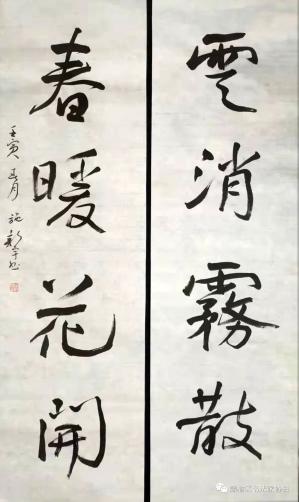 雲消霧散
春暖花開
壬寅正月施